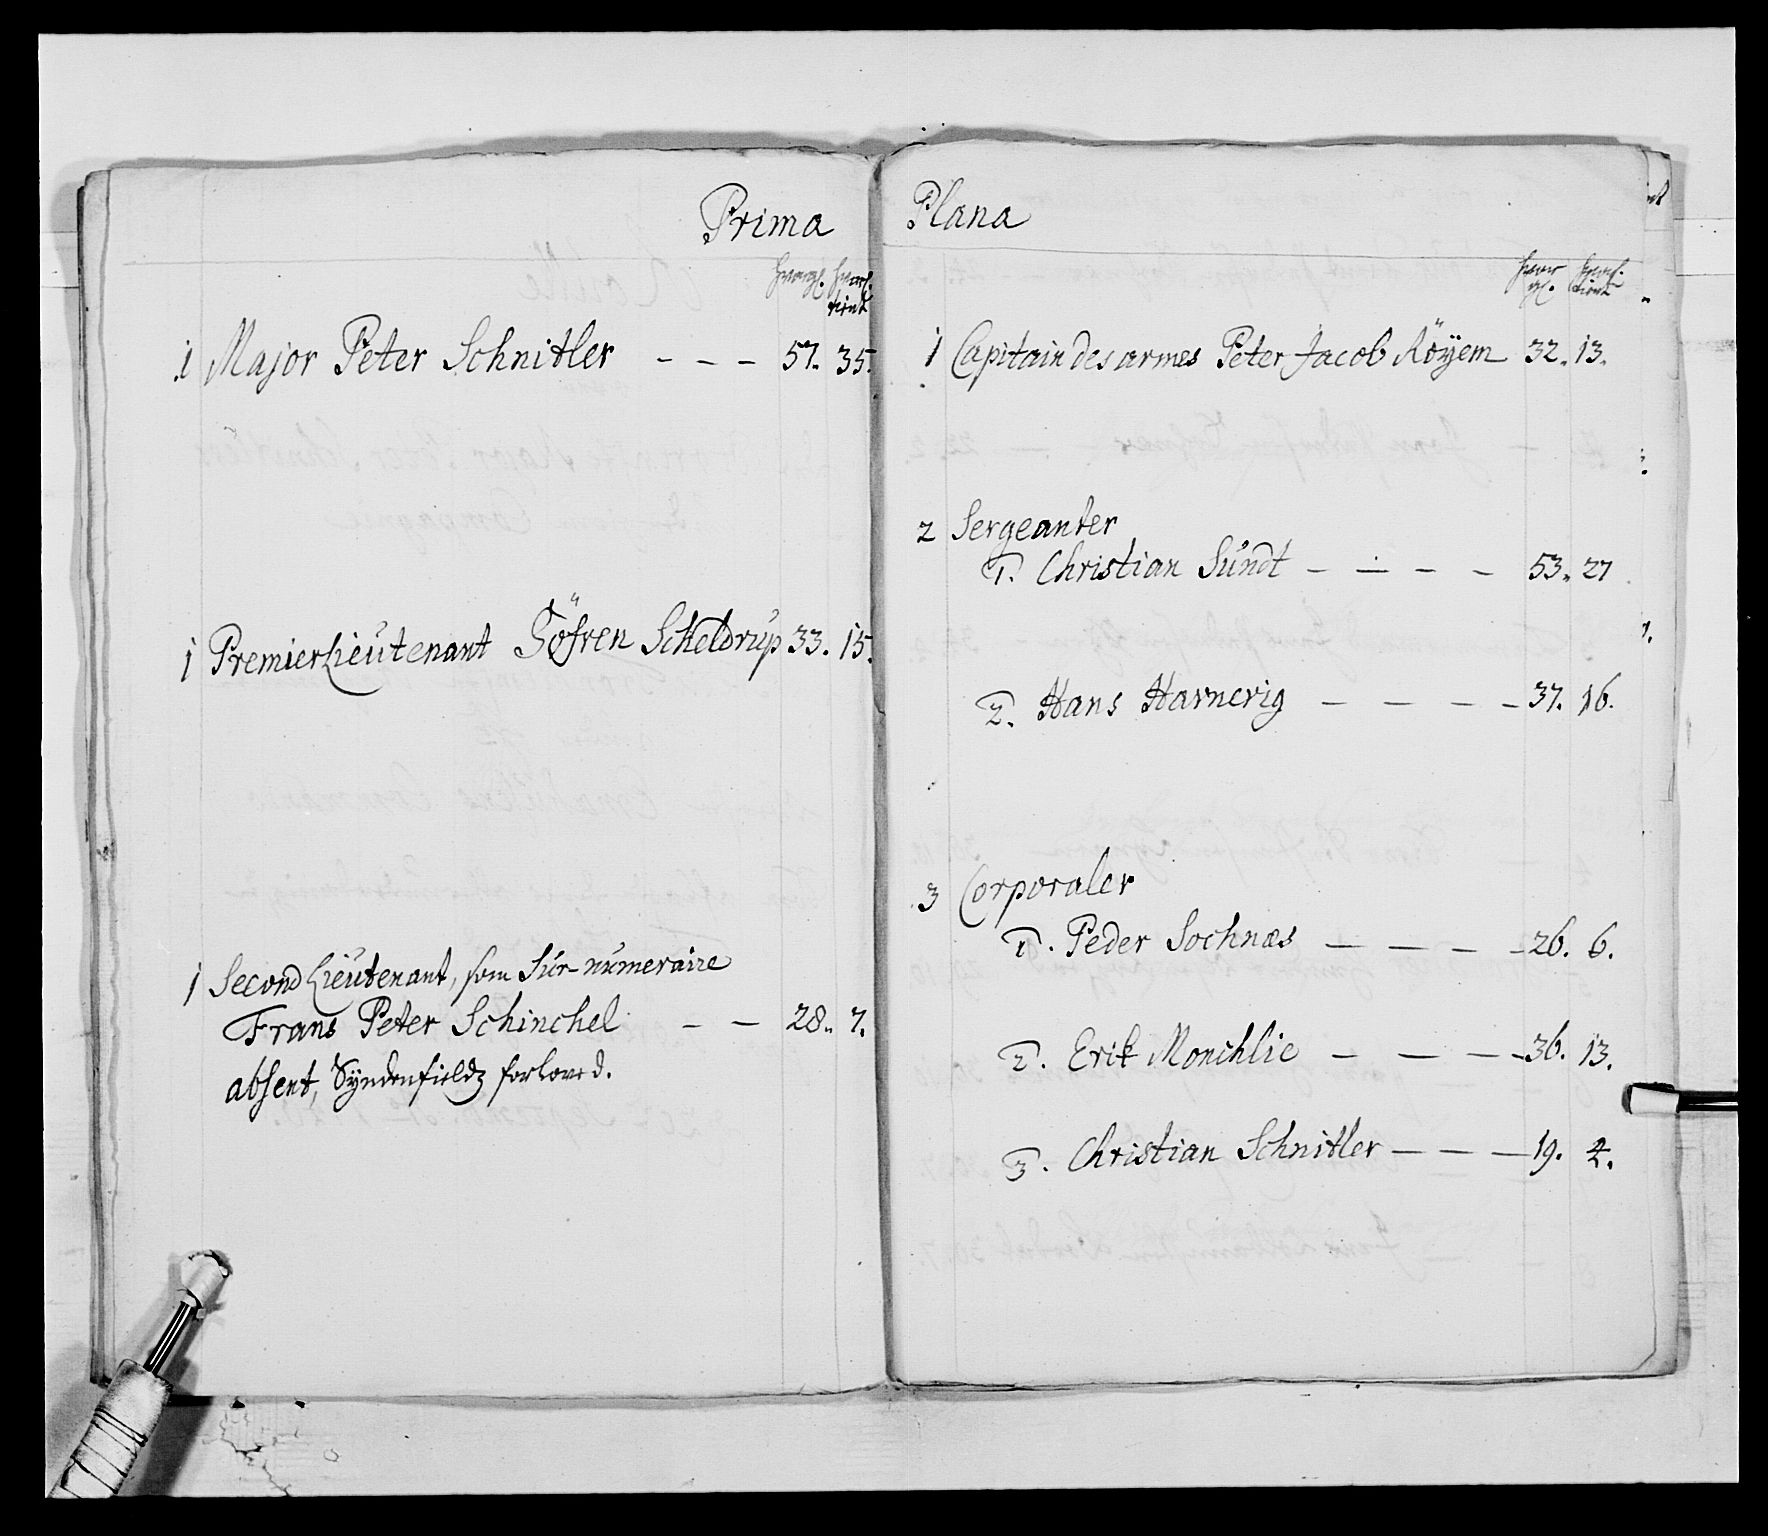 Prima Plana
hvorgl. hvorl.
tient
1 Major Peter Schnitler - - - 57. 35.
1 Premier Lieutenant Söfren Scheldrup 33. 15.
1 Second Lieutenant, som Sur-numeraire
Frans Peter Schinchel - - 28. 7.
absent, Syndenfieldz forlowed.
hvor hvorl.
gl. tient
1 Capitain des armes Peter Jacob Röyem 32. 13.
2 Sergeanter
1. Christian Sundt - - - - 53. 27
2. Hans Harnerig - - - - 37. 16.
3 Corporaler
1. Peder Sochnæs - - - - 26. 6.
2. Erik Monchlie - - - - 36. 13.
3. Christian Schnitler - - - 19. 4.